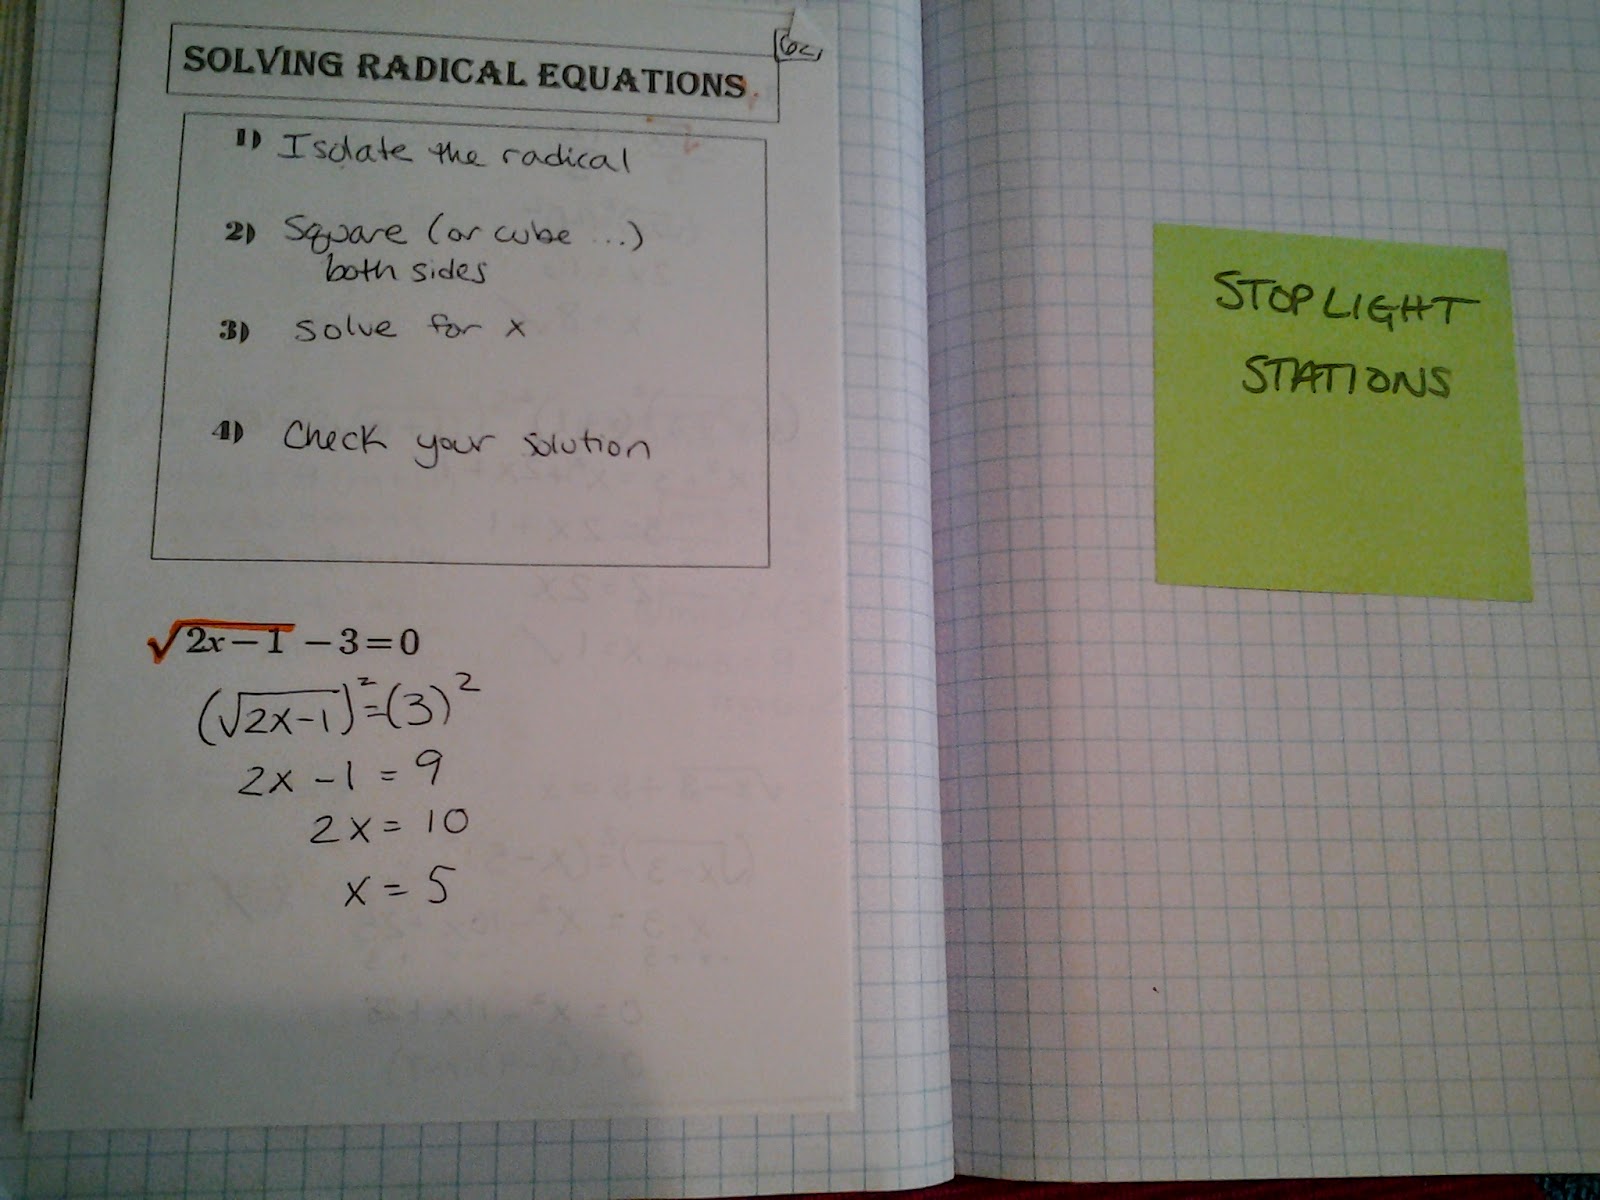 SOLVING RADICAL EQUATIONS
1) Isolate the radical
2) Square (or cube ...)
both sides
3) solve for x
4) Check your solution
√2x−1 − 3 = 0
(√2x-1)² = (3)²
2x - 1 = 9
2x = 10
x = 5
STOPLIGHT
STATIONS